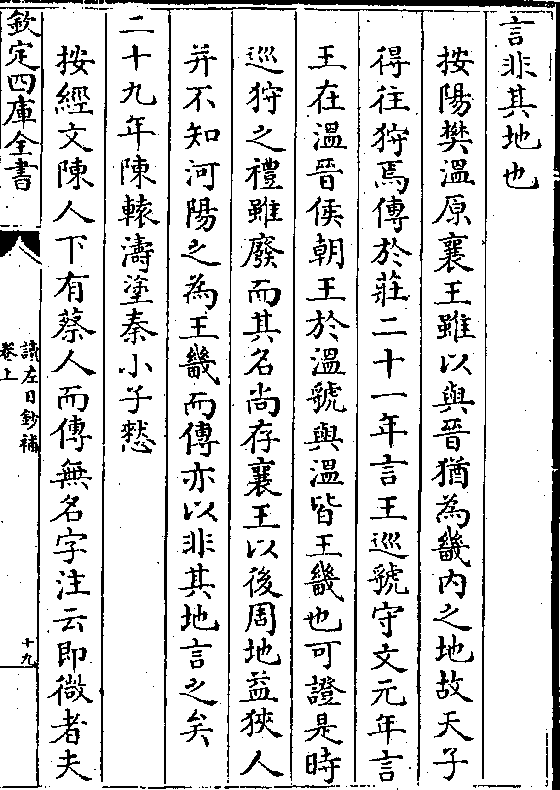 言非其地也
按陽樊溫原襄王雖以與晉猶為畿内之地故天子
得往狩焉傳於莊二十一年言王巡虢守文元年言
王在溫晉侯朝王於溫虢與溫皆王畿也可證是時
巡狩之禮雖廢而其名尚存襄王以後周地益狹人
并不知河陽之為王畿而傳亦以非其地言之矣
二十九年陳轅濤塗秦小子憖
按經文陳人下有蔡人而傳無名字注云即微者夫
欽定四庫全書
讀左日鈔補
卷上
十九